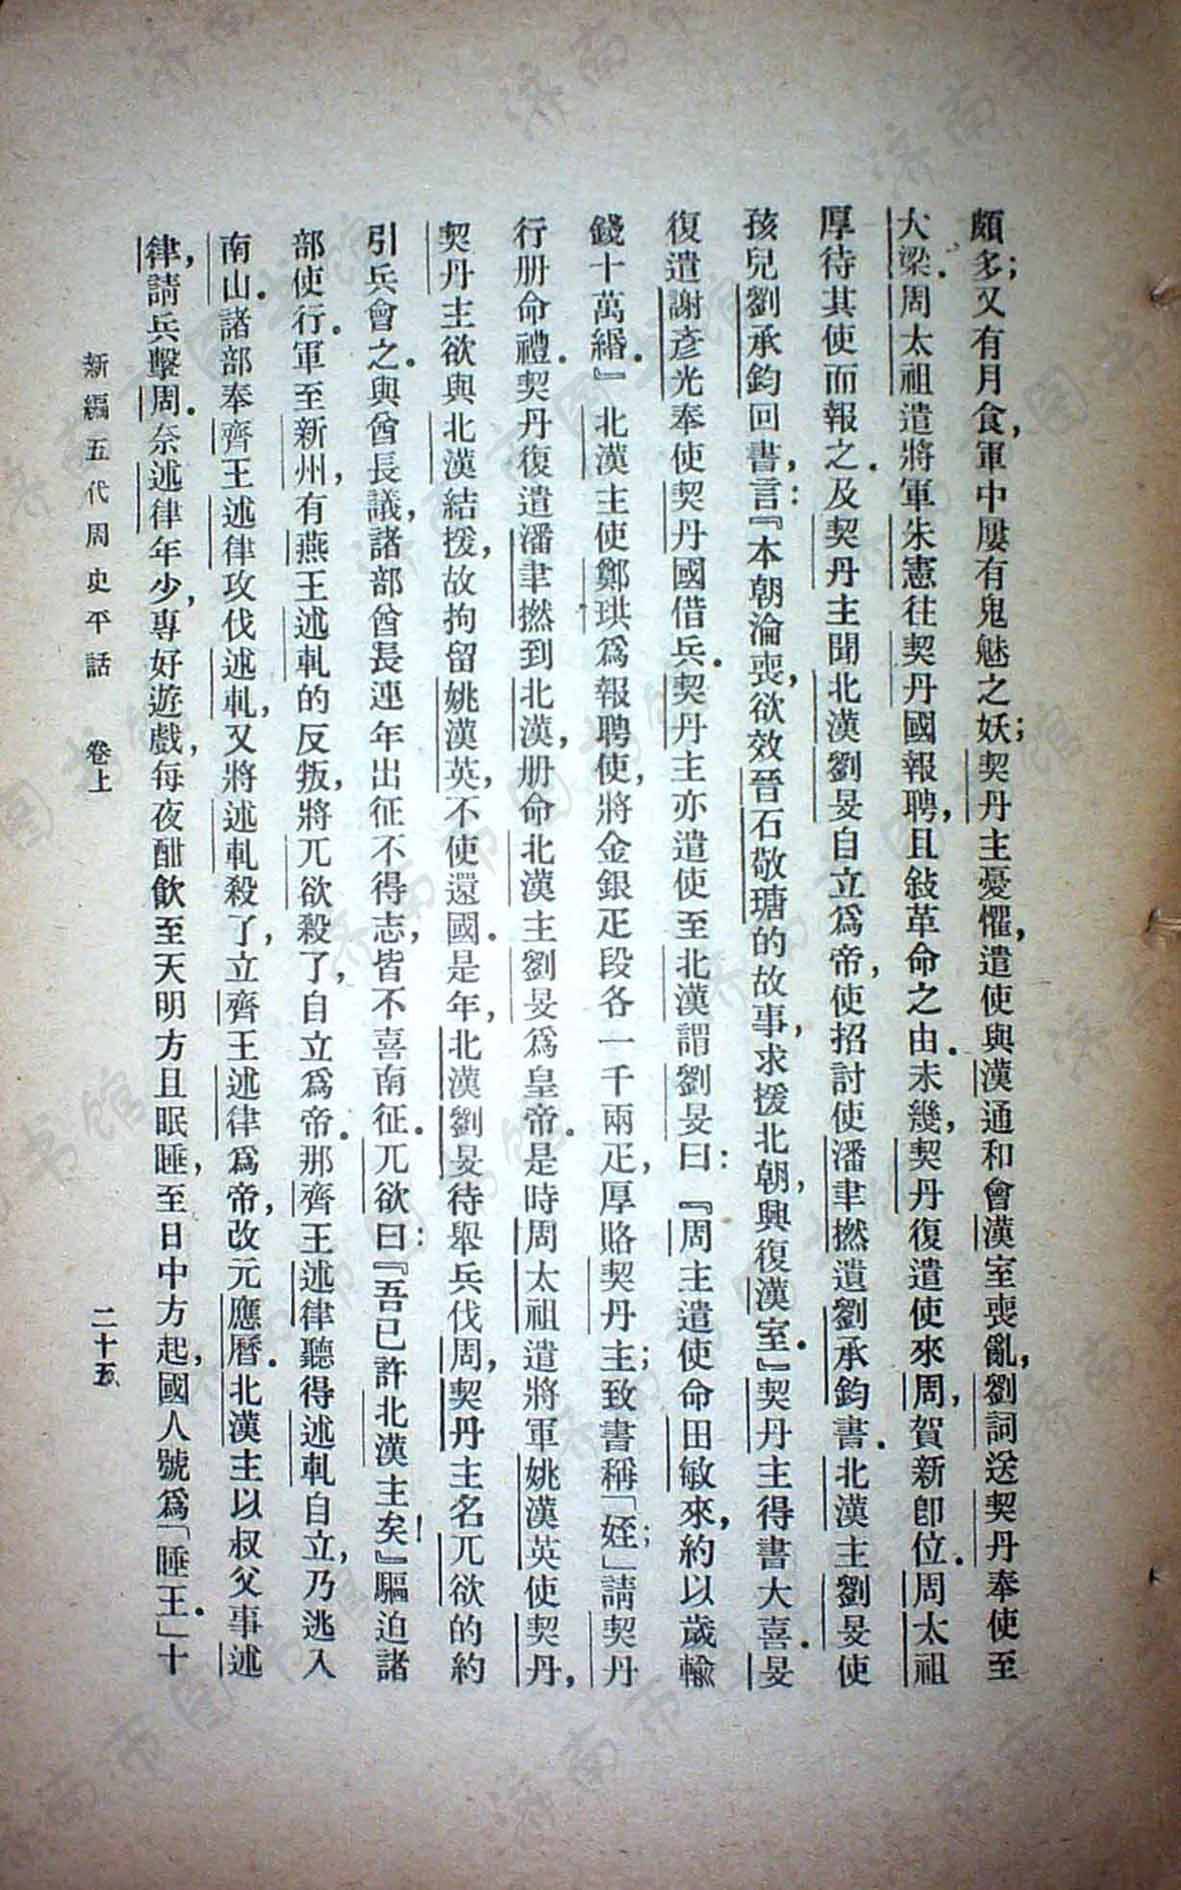 頗多；又有月食，軍中屢有鬼魅之妖；契丹主憂懼，遣使與漢通和會漢室喪亂，劉詞送契丹奉使至
大梁．周太祖遣將軍朱憲往契丹國報聘，且敍革命之由．未幾，契丹復遣使來周，賀新卽位．周太祖
厚待其使而報之．及契丹主聞北漢劉旻自立爲帝，使招討使潘聿撚遺劉承鈞書．北漢主劉旻使
孩兒劉承鈞回書，言：『本朝淪喪，欲效晉石敬瑭的故事，求援北朝，興復漢室．』契丹主得書大喜．旻
復遣謝彥光奉使契丹國借兵．契丹主亦遣使至北漢謂劉旻曰：『周主遣使命田敏來，約以歲輸
錢十萬緡．』北漢主使鄭珙爲報聘使，將金銀疋段各一千兩疋，厚賂契丹主；致書稱「姪」；請契丹
行册命禮．契丹復遣潘聿撚到北漢，册命北漢主劉旻爲皇帝．是時周太祖遣將軍姚漢英使契丹，
契丹主欲與北漢結援，故拘留姚漢英，不使還國．是年，北漢劉旻待舉兵伐周，契丹主名兀欲的約
引兵會之．與酋長議，諸部酋長連年出征不得志，皆不喜南征．兀欲曰：『吾已許北漢主矣！』驅迫諸
部使行．軍至新州，有燕王述軋的反叛，將兀欲殺了，自立爲帝．那齊王述律聽得述軋自立，乃逃入
南山．諸部奉齊王述律攻伐述軋，又將述軋殺了，立齊王述律爲帝，改元應曆．北漢主以叔父事述
律，請兵擊周．奈述律年少，專好遊戲，每夜酣飲至天明方且眠睡，至日中方起，國人號爲「睡王．」十
新編五代周史平話　卷上　二十五
濟南市图书馆